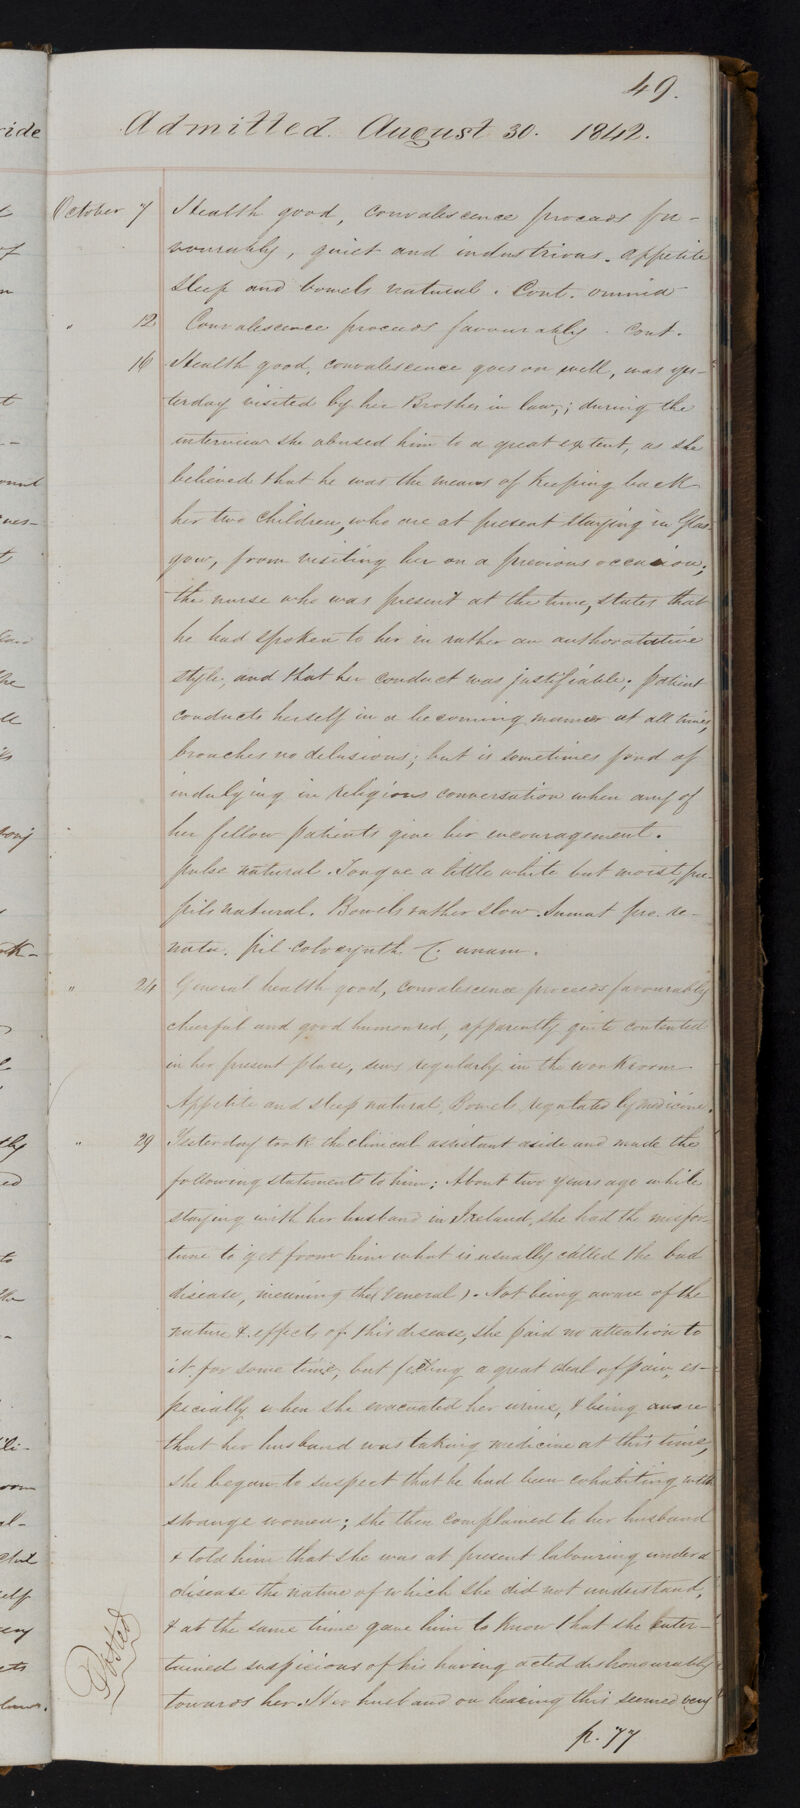 49.
Admitted August 30. 1842.
October 7 Health good, convalescence proceeds fa-
vourably, quiet and industrious. appetite
sleep and bowels natural. Cont. omnia
" 12 Convalescence proceeds favourably. Cont.
16 Health good, convalescence goes on well, was yes-
terday visited by her Brother in law,; during the
interview she abused him to a great extent, as she
believed that he was the means of keeping back
her two children, who are at present staying in Glas-
gow, from visiting her on a previous occasion;
the nurse who was present at the time, states that
he had spoken to her in rather an authoratative
style, and that her conduct was justifiable; patient
conducts herself in a becoming manner at all times,
broaches no delusions; but is sometimes fond of
indulging in religious conversation when any of
her fellow patients give her encouragement.
pulse natural. Tongue a little white but moist, pu-
pils natural. Bowels rather slow. Sumat pro. re-
nata. pil colocynth C. unam.
" 24 General health good, convalescence proceeds favourably
cheerful and good humoured, apparently quite contented
in her present place, sews regularly in the workroom
Appetite and sleep natural, Bowels, regulated by medicine.
" 29 Yesterday took the clinical assistant aside and made the
following statements to him; About two years ago while
staying with her husband in Ireland, she had the misfor-
tune to get from him what is usually called the bad
disease, meaning the (veneral). Not being aware of the
nature & effects of this disease, she paid no attention to
it for some time, but feeling a great deal of pain, es-
pecially when she evacuated her urine, & being aware
that her husband was taking medicine at this time,
she began to suspect that he had been cohabiting with
strange women; she then complained to her husband
& told him that she was at present labouring under a
disease the nature of which she did not understand,
& at the same time gave him to know that she enter-
tained suspicions of his having acted dishonourably
towards her. Her husband on hearing this seemed very
Posted
p. 77